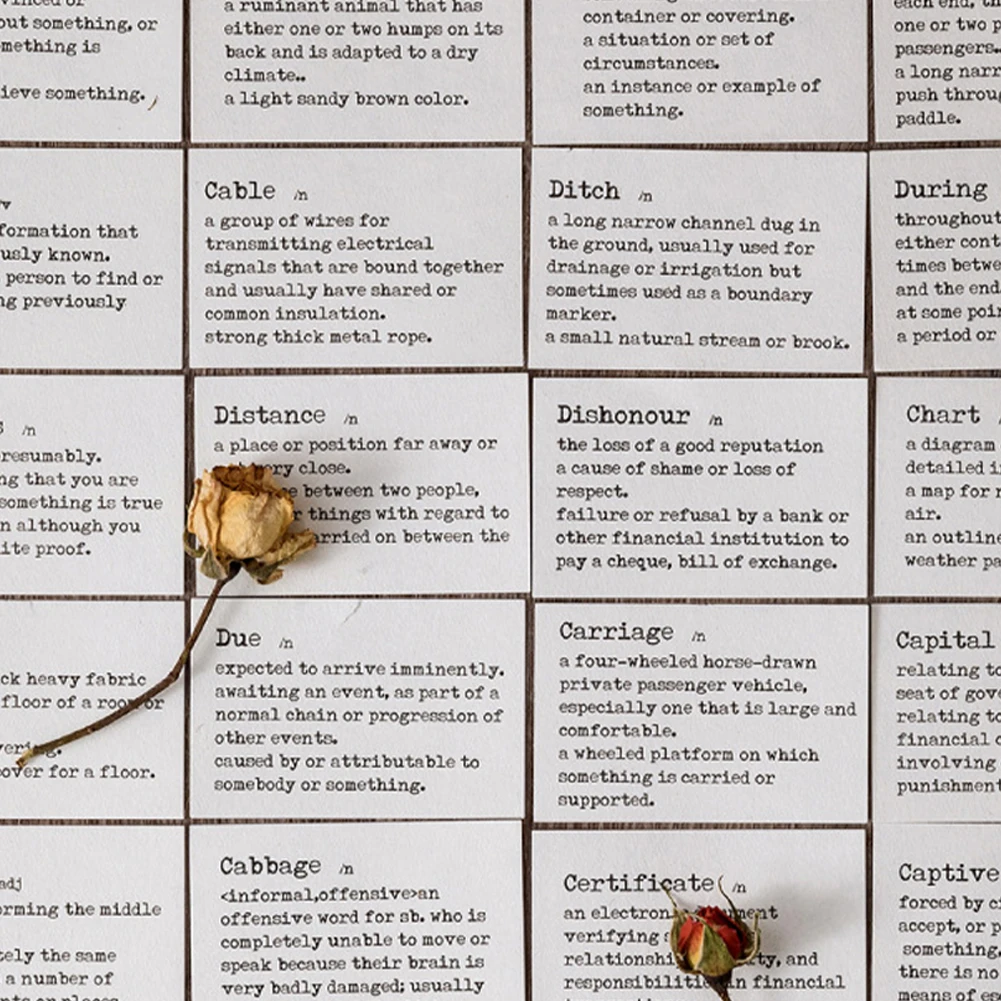 out something, or
mething is
ieve something.
a ruminant animal that has
either one or two humps on its
back and is adapted to a dry
climate..
a light sandy brown color.
container or covering.
a situation or set of
circumstances.
an instance or example of
something.
each end, th
one or two p
passengers..
a long narr
push throug
paddle.
formation that
usly known.
person to find or
ng previously
Cable /n
a group of wires for
transmitting electrical
signals that are bound together
and usually have shared or
common insulation.
strong thick metal rope.
Ditch /n
a long narrow channel dug in
the ground, usually used for
drainage or irrigation but
sometimes used as a boundary
marker.
a small natural stream or brook.
During
throughout
either cont
times betwe
and the end
at some poin
a period or
s /n
resumably.
ng that you are
something is true
n although you
ite proof.
Distance /n
a place or position far away or
ery close.
e between two people,
r things with regard to
arried on between the
Dishonour /n
the loss of a good reputation
a cause of shame or loss of
respect.
failure or refusal by a bank or
other financial institution to
pay a cheque, bill of exchange.
Chart
a diagram
detailed i
a map for n
air.
an outline
weather pa
ck heavy fabric
floor of a room or
vering.
cover for a floor.
Due /n
expected to arrive imminently.
awaiting an event, as part of a
normal chain or progression of
other events.
caused by or attributable to
somebody or something.
Carriage /n
a four-wheeled horse-drawn
private passenger vehicle,
especially one that is large and
comfortable.
a wheeled platform on which
something is carried or
supported.
Capital
relating to
seat of gov
relating to
financial c
involving
punishment
adj
orming the middle
tely the same
a number of
Cabbage /n
<informal,offensive>an
offensive word for sb. who is
completely unable to move or
speak because their brain is
very badly damaged; usually
Certificate /n
an electron ment
verifying
relationshi ty, and
responsibilities in financial
Captive
forced by ci
accept, or p
something.
there is no
means of es